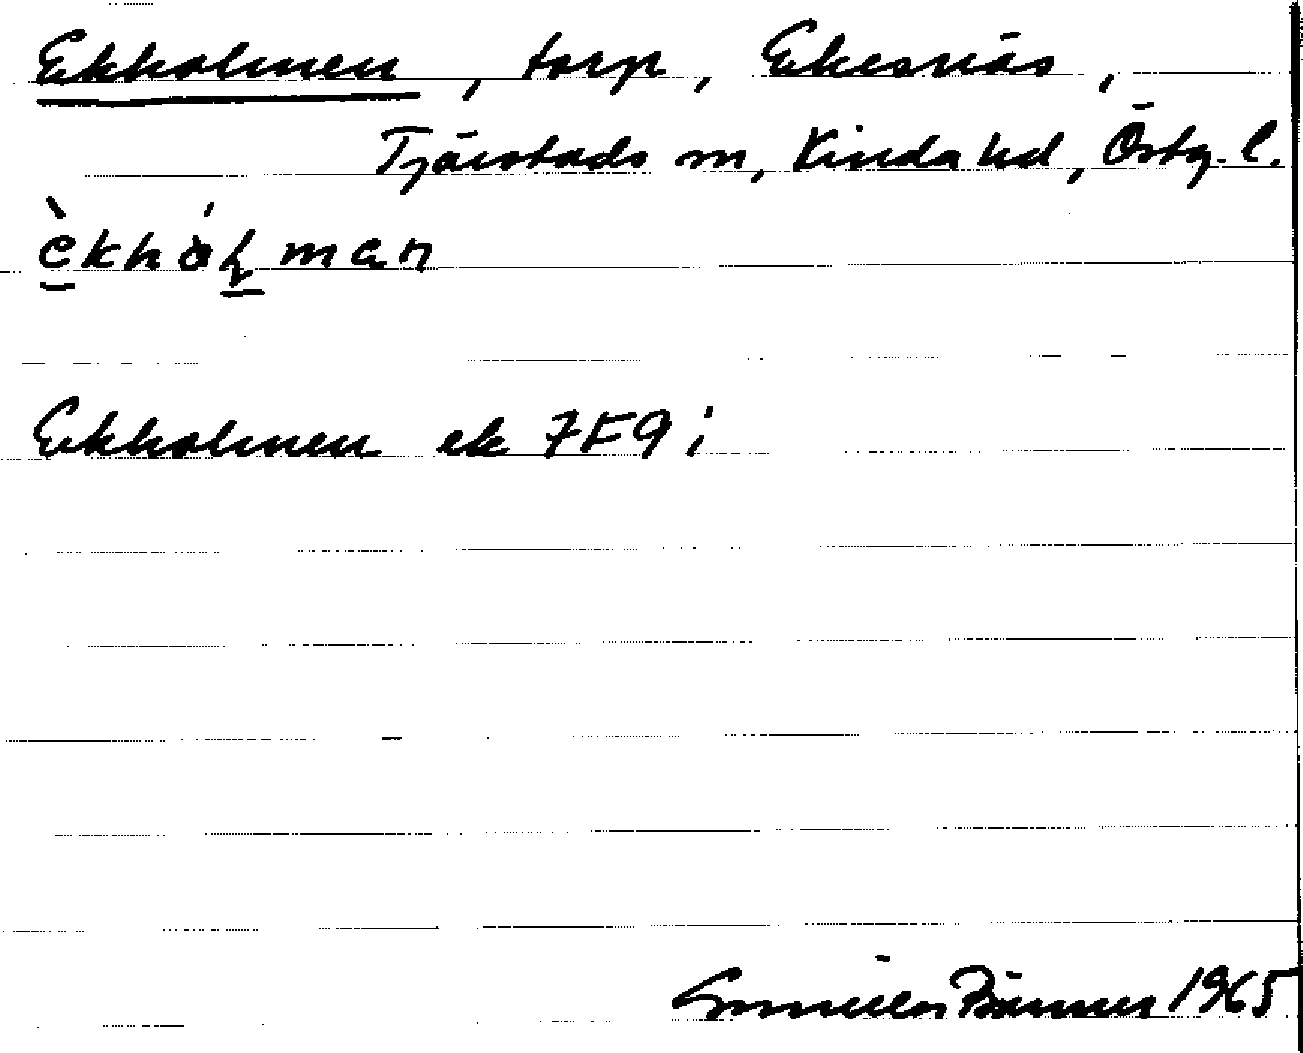 Ekholmen, torp, Ekesnäs,
Tjärstads sn, Kinda hd, Östg. l.
èkhál̠man
Ekholmen ek 7F9i
1965